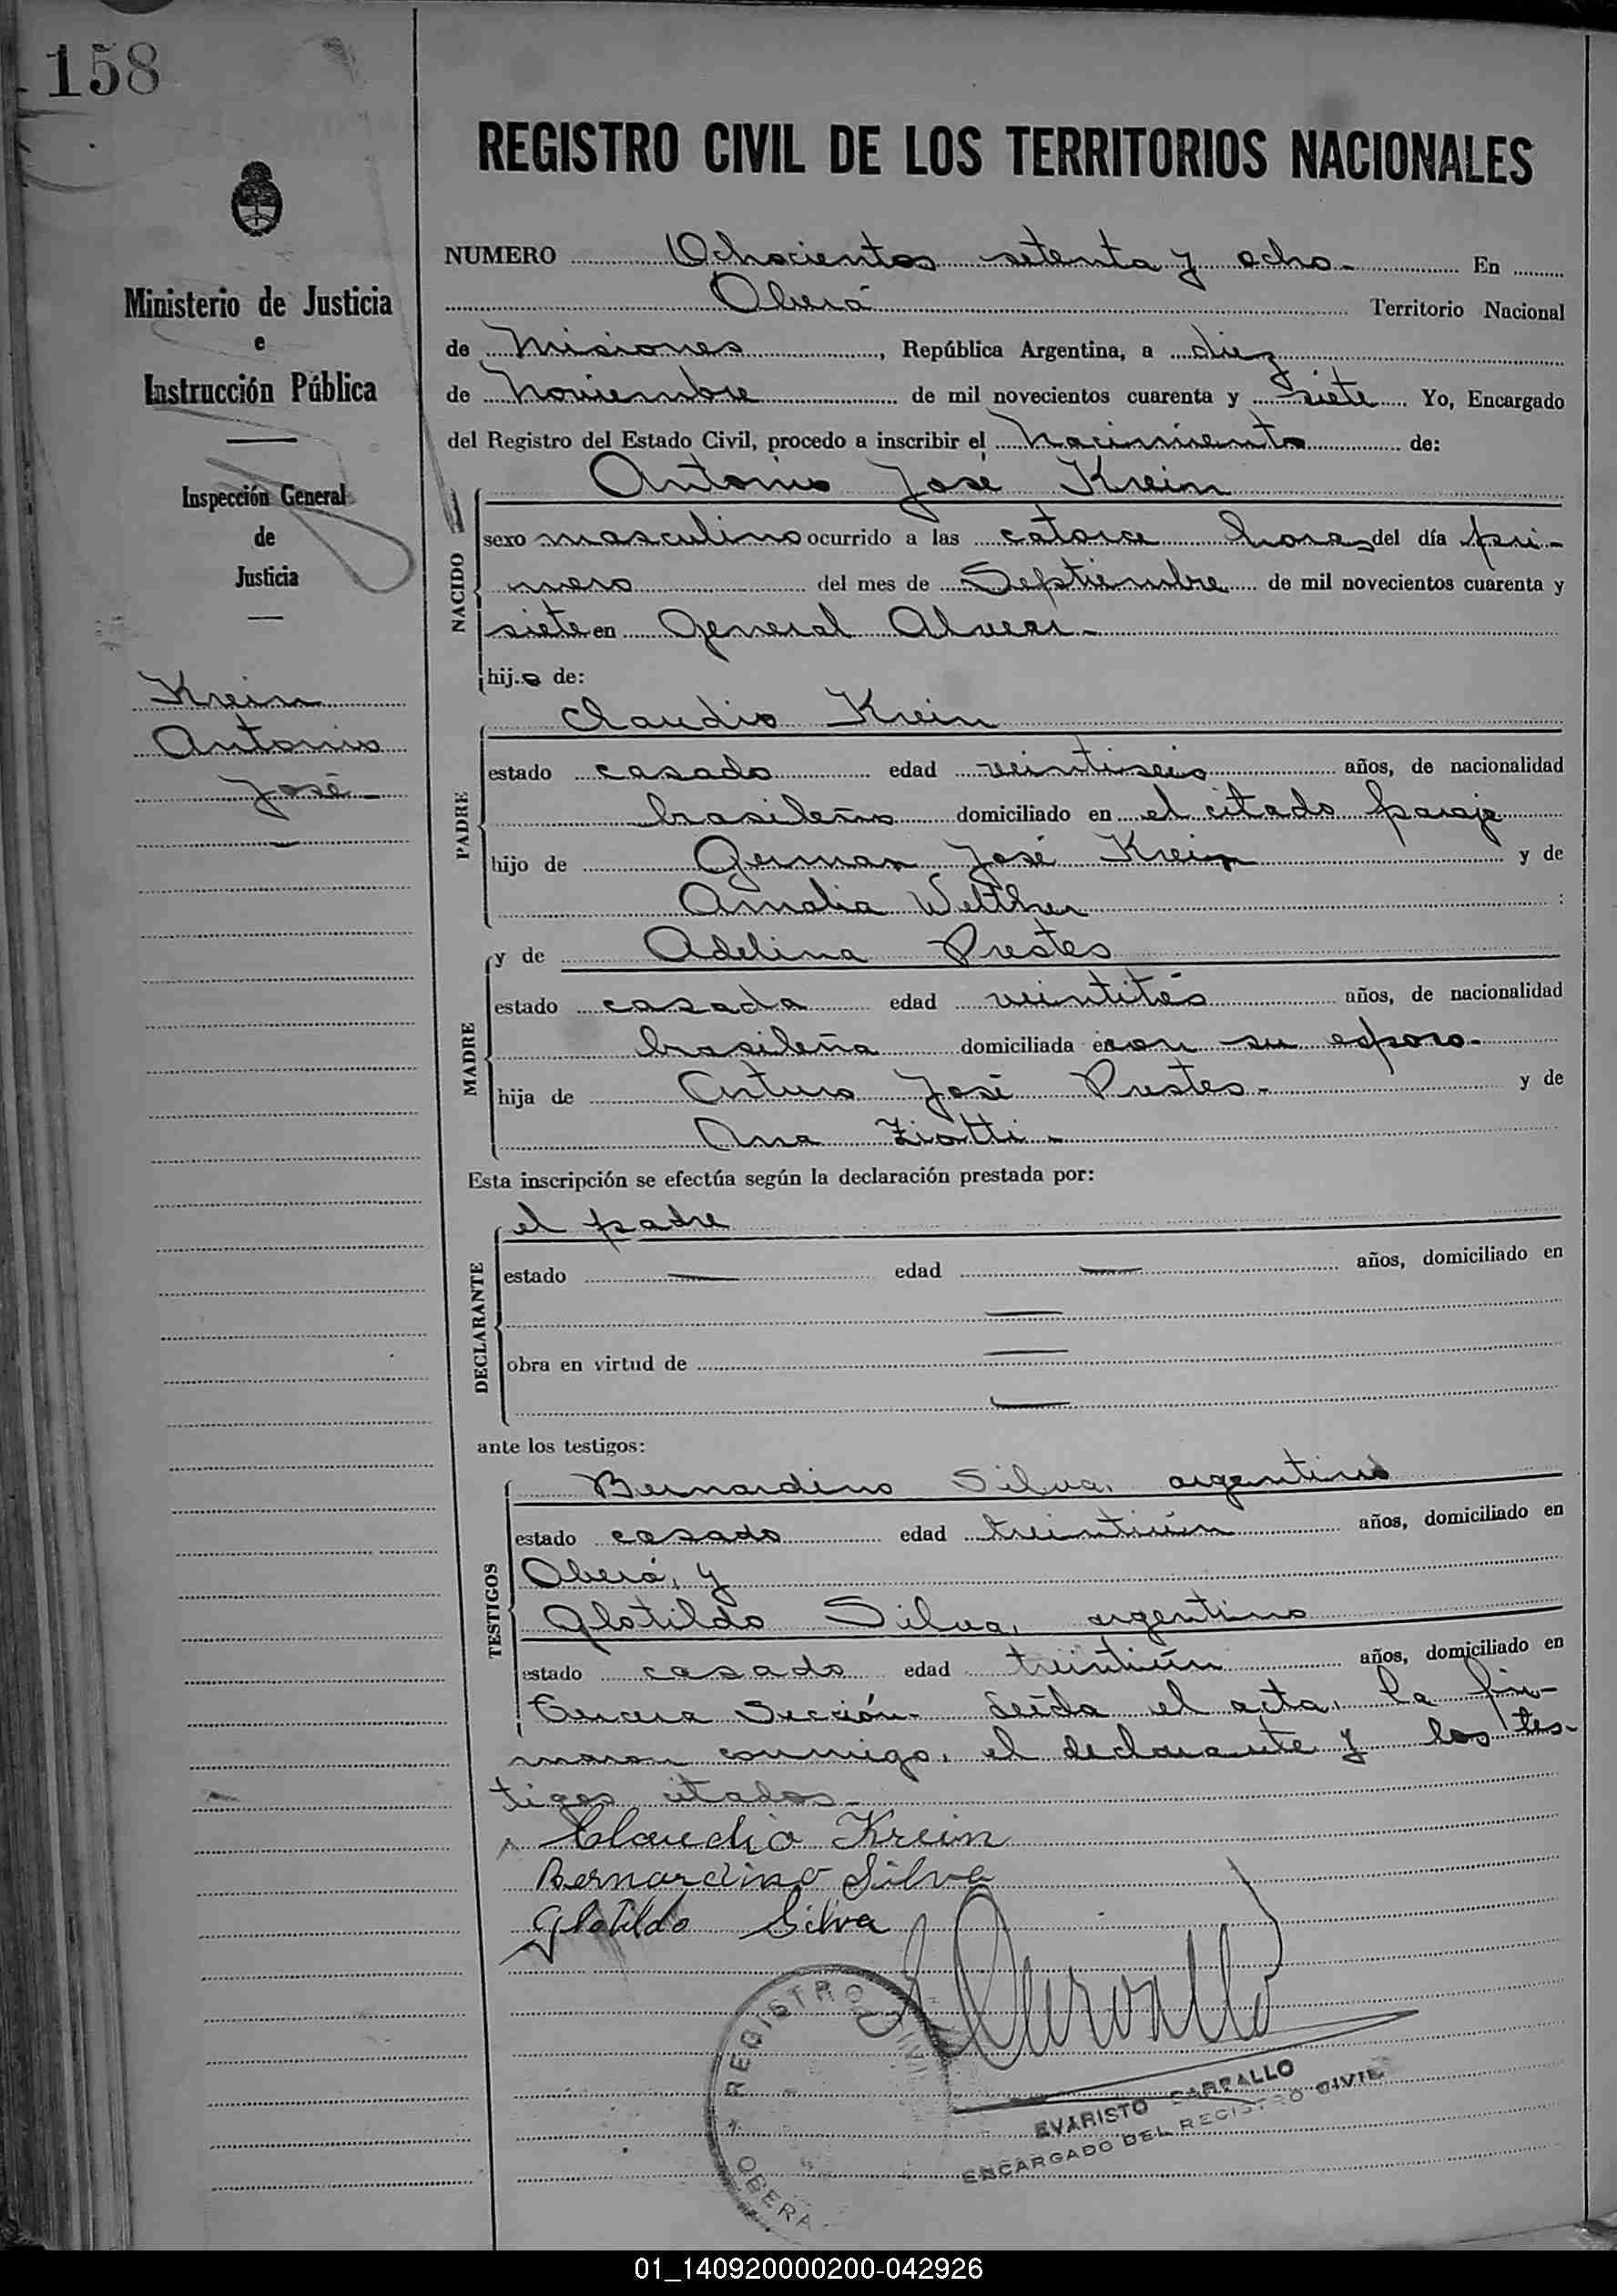 158
REGISTRO CIVIL DE LOS TERRITORIOS NACIONALES
Ministerio de Justicia
e
Instrucción Pública
Inspección General
de
Justicia
Krein
Antonio
José
NUMERO Ochocientos setenta y ocho. En
Oberá Territorio Nacional
de Misiones, República Argentina, a diez
de Noviembre de mil novecientos cuarenta y siete Yo, Encargado
del Registro del Estado Civil, procedo a inscribir el Nacimiento de:
NACIDO
Antonio José Krein
sexo masculino ocurrido a las catorce horas del día pri-
mero del mes de Septiembre de mil novecientos cuarenta y
siete en General Alvear.
hijo de:
PADRE
Claudio Krein
estado casado edad veintiseis años, de nacionalidad
brasileño domiciliado en el citado paraje
hijo de German José Krein y de
Amalia Welther
MADRE
y de Adelina Prestes
estado casada edad veintités años, de nacionalidad
brasileña domiciliada con su esposo.
hija de Arturo José Prestes- y de
Ana Ziotti.
Esta inscripción se efectúa según la declaración prestada por:
DECLARANTE
el padre
estado — edad — años, domiciliado en
—
obra en virtud de —
—
ante los testigos:
TESTIGOS
Bernardino Silva, argentino
estado casado edad treintiún años, domiciliado en
Oberá, y
Glotildo Silva, argentino
estado casado edad treintiún años, domiciliado en
Tercera Sección- Leída el acta, la fir-
maron conmigo, el declarante y los tes-
tigos citados-
Claudio Krein
Bernardino Silva
Glotildo Silva
REGISTRO CIVIL
OBERA
EVARISTO CARBALLO
ENCARGADO DEL REGISTRO CIVIL
01_140920000200-042926